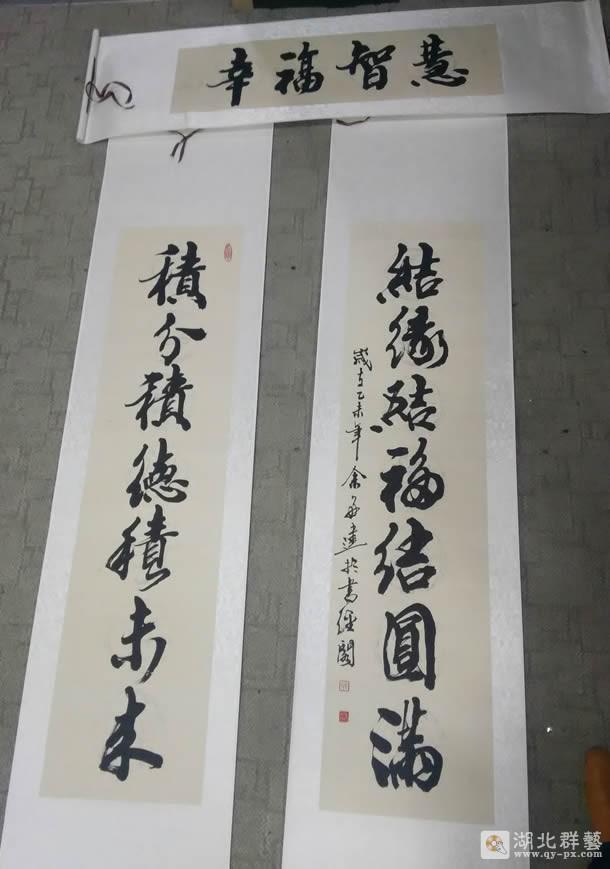 幸福智慧
積分積德積未来
結緣結福結圓滿
歲在乙未年余於書經閣
湖北群藝
www.qy-px.com